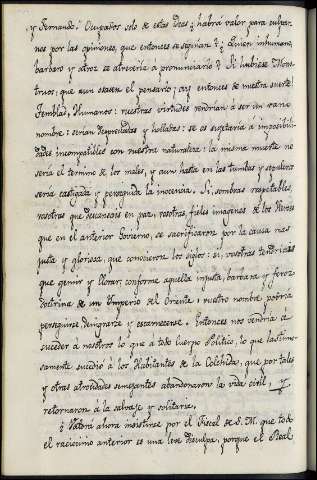 y Fernando! Ocupados solo de estas Ideas ¿habrá valor para culpar-
nos por las opiniones, que entonces se seguian? ¿Quien inhumano,
barbaro y atroz se atrevería à pronunciarlo? Si hubiese Mons-
truos, que aun osasen el pensarlo; ¡ay entonces de nuestra suerte!
Temblad, Humanos: vuestras virtudes vendrian à ser un vano
nombre: serian despreciadas y holladas: se os sujetaria à imposibili-
dades incompatibles con vuestra naturaleza: la misma muerte no
seria el termino de los males, y aun hasta en las tumbas y sepulcros
seria castigada y perseguida la inocencia. Si, sombras respetables,
vosotras que descansais en paz, vosotras, fieles imagenes de los Heroes
que en el anterior Govierno, se sacrificaron por la causa mas
justa y gloriosa, que conocieron los siglos: si, vosotras tendriais
que gemir y llorar; conforme aquella injusta, barbara y feroz
doctrina de un Imperio del Oriente: vuestro nombre podria
perseguirse, denigrarse y estremecerse. Entonces nos vendria à
suceder à nosotros lo que à todo Cuerpo Politico, lo que lastimo-
samente sucedió à los Habitantes de la Colchida, que por tales
y otras atrocidades semejantes abandonaron la vida civil, y
retornaron à la salvaje y solitaria.
¿Valdrá ahora insistirse por el Fiscal de S. M. que todo
el raciocinio anterior es una leve disculpa, porque el Real